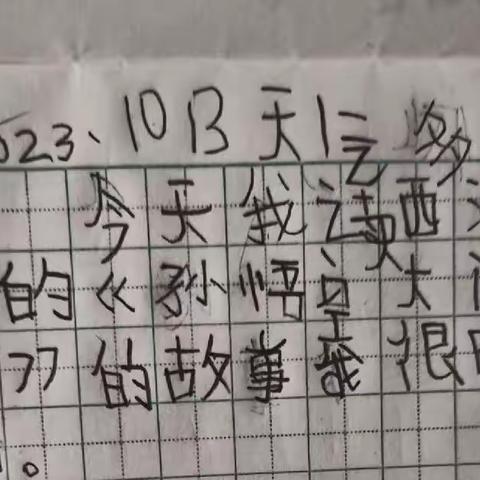 023、10日天气多
今天我读西
的《孙悟空大
》的故事我很
。